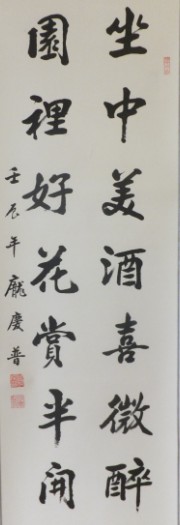 坐中美酒喜微醉
園裡好花賞半開
壬辰年龐慶普